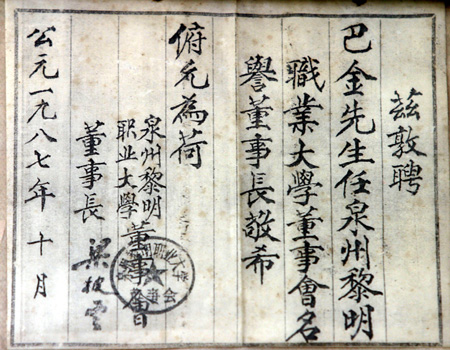 茲敦聘
巴金先生任泉州黎明
職業大學董事會名
譽董事長敬希
俯允為荷
泉州黎明
职业大學
董事會
董事長 梁披雲
公元一九八七年十月